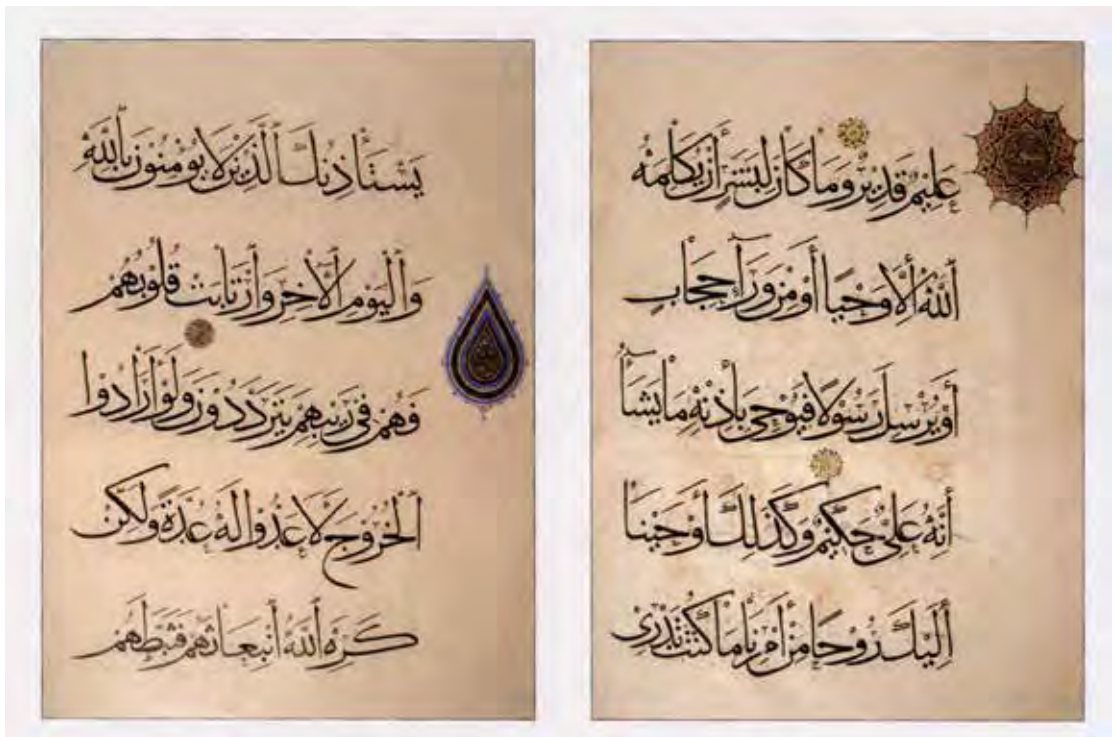 عَلِيمٌ قَدِيرٌ وَمَا كَانَ لِبَشَرٍ أَنْ يُكَلِّمَهُ
اللَّهُ إِلَّا وَحْيًا أَوْ مِنْ وَرَآءِ حِجَابٍ
أَوْ يُرْسِلَ رَسُولًا فَيُوحِيَ بِإِذْنِهِ مَا يَشَآءُ
إِنَّهُ عَلِيٌّ حَكِيمٌ وَكَذَلِكَ أَوْحَيْنَا
إِلَيْكَ رُوحًا مِنْ أَمْرِنَا مَا كُنْتَ تَدْرِي
يَسْتَأْذِنُكَ الَّذِينَ لَا يُؤْمِنُونَ بِاللَّهِ
وَالْيَوْمِ الْآخِرِ وَارْتَابَتْ قُلُوبُهُمْ
فَهُمْ فِي رَيْبِهِمْ يَتَرَدَّدُونَ وَلَوْ أَرَادُوا
الْخُرُوجَ لَأَعَدُّوا لَهُ عُدَّةً وَلَكِنْ
كَرِهَ اللَّهُ انْبِعَاثَهُمْ فَثَبَّطَهُمْ